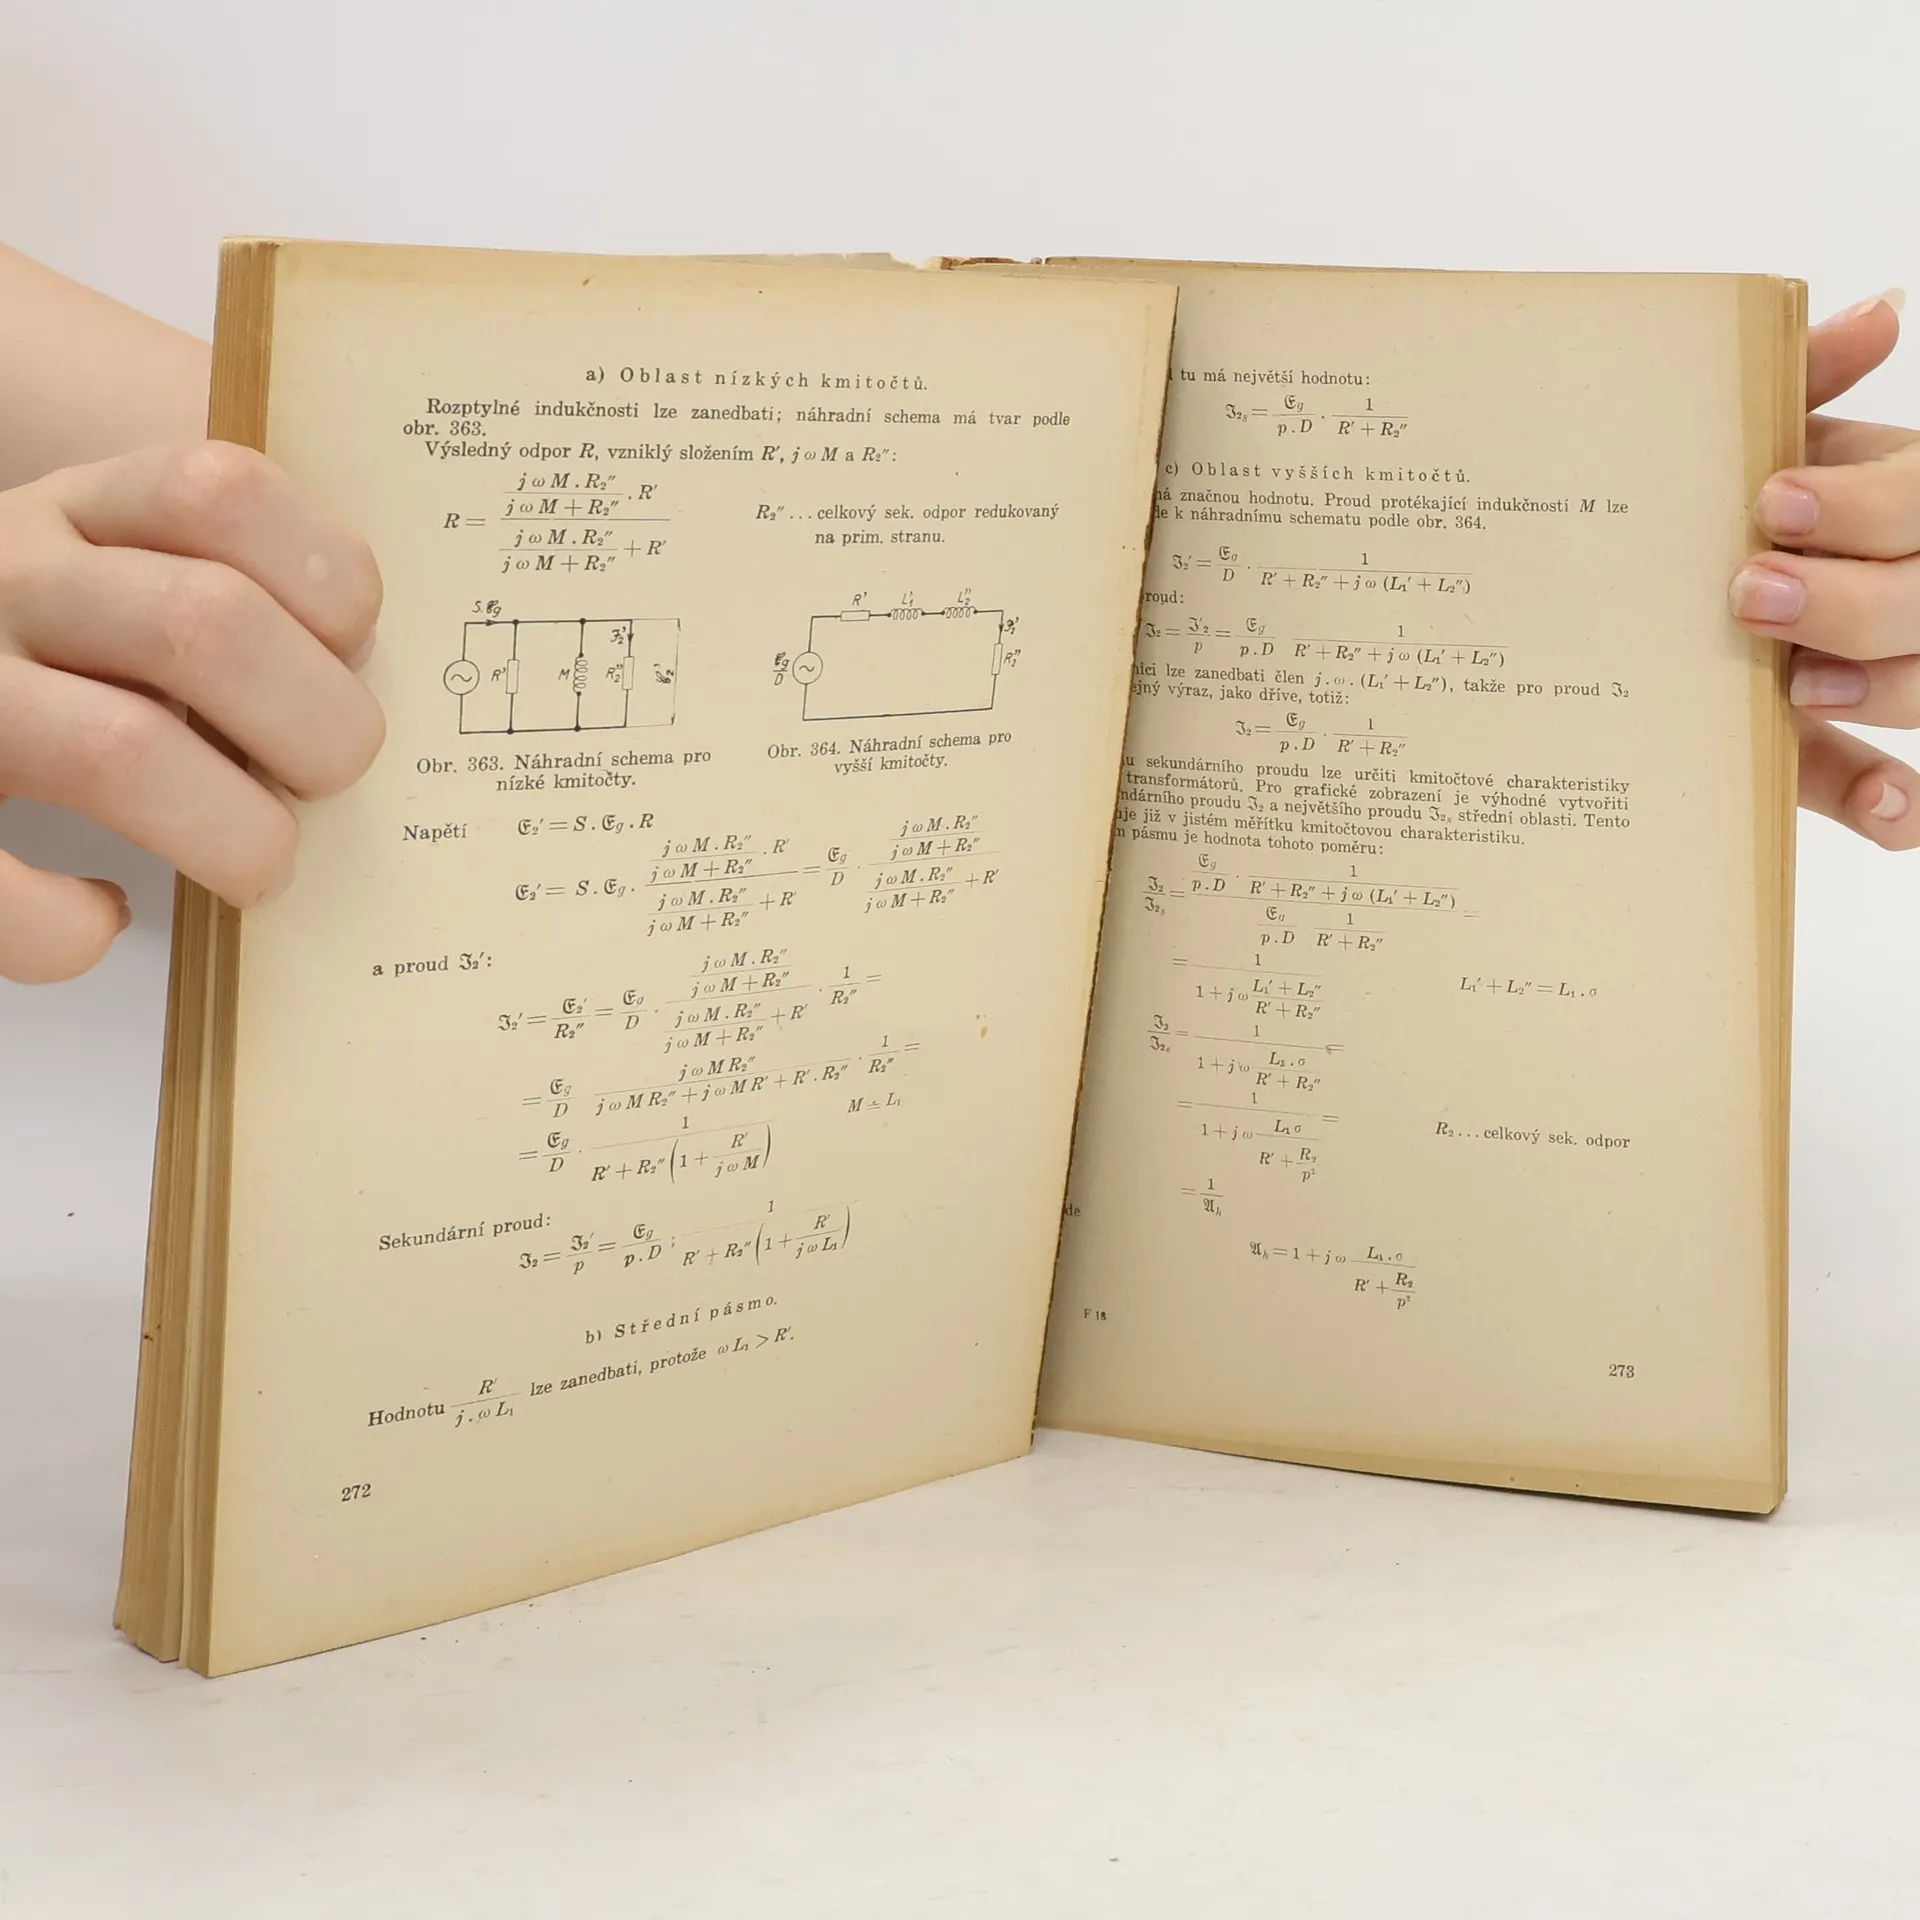 a) Oblast nízkých kmitočtů.
Rozptylné indukčnosti lze zanedbati; náhradní schema má tvar podle
obr. 363.
Výsledný odpor R, vzniklý složením R′, j ω M a R₂″:
R = ((j ω M . R₂″)/(j ω M + R₂″) . R′)/((j ω M . R₂″)/(j ω M + R₂″) + R′)
R₂″ ... celkový sek. odpor redukovaný
na prim. stranu.
S.𝔈g
R′ M R₂″ ℑ₂′ 𝔈₂′
Obr. 363. Náhradní schema pro
nízké kmitočty.
R′ L₁′ L₂″
𝔈g/D ℑ₂′ R₂″
Obr. 364. Náhradní schema pro
vyšší kmitočty.
Napětí 𝔈₂′ = S . 𝔈g . R
𝔈₂′ = S . 𝔈g . ((j ω M . R₂″)/(j ω M + R₂″) . R′)/((j ω M . R₂″)/(j ω M + R₂″) + R′) = 𝔈g/D . ((j ω M . R₂″)/(j ω M + R₂″))/((j ω M . R₂″)/(j ω M + R₂″) + R′)
a proud ℑ₂′:
ℑ₂′ = 𝔈₂′/R₂″ = 𝔈g/D . ((j ω M . R₂″)/(j ω M + R₂″))/((j ω M . R₂″)/(j ω M + R₂″) + R′) . 1/R₂″ =
= 𝔈g/D (j ω M R₂″)/(j ω M R₂″ + j ω M R′ + R′ . R₂″) . 1/R₂″ =
M ≐ L₁
= 𝔈g/D . 1/(R′ + R₂″ (1 + R′/(j ω M)))
Sekundární proud:
ℑ₂ = ℑ₂′/p = 𝔈g/(p . D) . 1/(R′ + R₂″ (1 + R′/(j ω L₁)))
b) Střední pásmo.
Hodnotu R′/(j . ω L₁) lze zanedbati, protože ω L₁ > R′.
272
tu má největší hodnotu:
ℑ₂ₛ = 𝔈g/(p . D) . 1/(R′ + R₂″)
c) Oblast vyšších kmitočtů.
značnou hodnotu. Proud protékající indukčností M lze
k náhradnímu schematu podle obr. 364.
ℑ₂′ = 𝔈g/D . 1/(R′ + R₂″ + j ω (L₁′ + L₂″))
roud:
ℑ₂ = ℑ₂′/p = 𝔈g/(p . D) 1/(R′ + R₂″ + j ω (L₁′ + L₂″))
lze zanedbati člen j . ω . (L₁′ + L₂″), takže pro proud ℑ₂
ejný výraz, jako dříve, totiž:
ℑ₂ = 𝔈g/(p . D) . 1/(R′ + R₂″)
u sekundárního proudu lze určiti kmitočtové charakteristiky
transformátorů. Pro grafické zobrazení je výhodné vytvořiti
ndárního proudu ℑ₂ a největšího proudu ℑ₂ₛ střední oblasti. Tento
uje již v jistém měřítku kmitočtovou charakteristiku.
pásmu je hodnota tohoto poměru:
ℑ₂/ℑ₂ₛ = (𝔈g/(p . D) . 1/(R′ + R₂″ + j ω (L₁′ + L₂″)))/(𝔈g/(p . D) 1/(R′ + R₂″)) =
= 1/(1 + j ω (L₁′ + L₂″)/(R′ + R₂″))
L₁′ + L₂″ = L₁ . σ
ℑ₂/ℑ₂ₛ = 1/(1 + j ω (L₁ . σ)/(R′ + R₂″)) =
= 1/(1 + j ω (L₁ σ)/(R′ + R₂/p²)) =
R₂ ... celkový sek. odpor
= 1/𝔄ₕ
de
𝔄ₕ = 1 + j ω (L₁ . σ)/(R′ + R₂/p²)
F 18
273